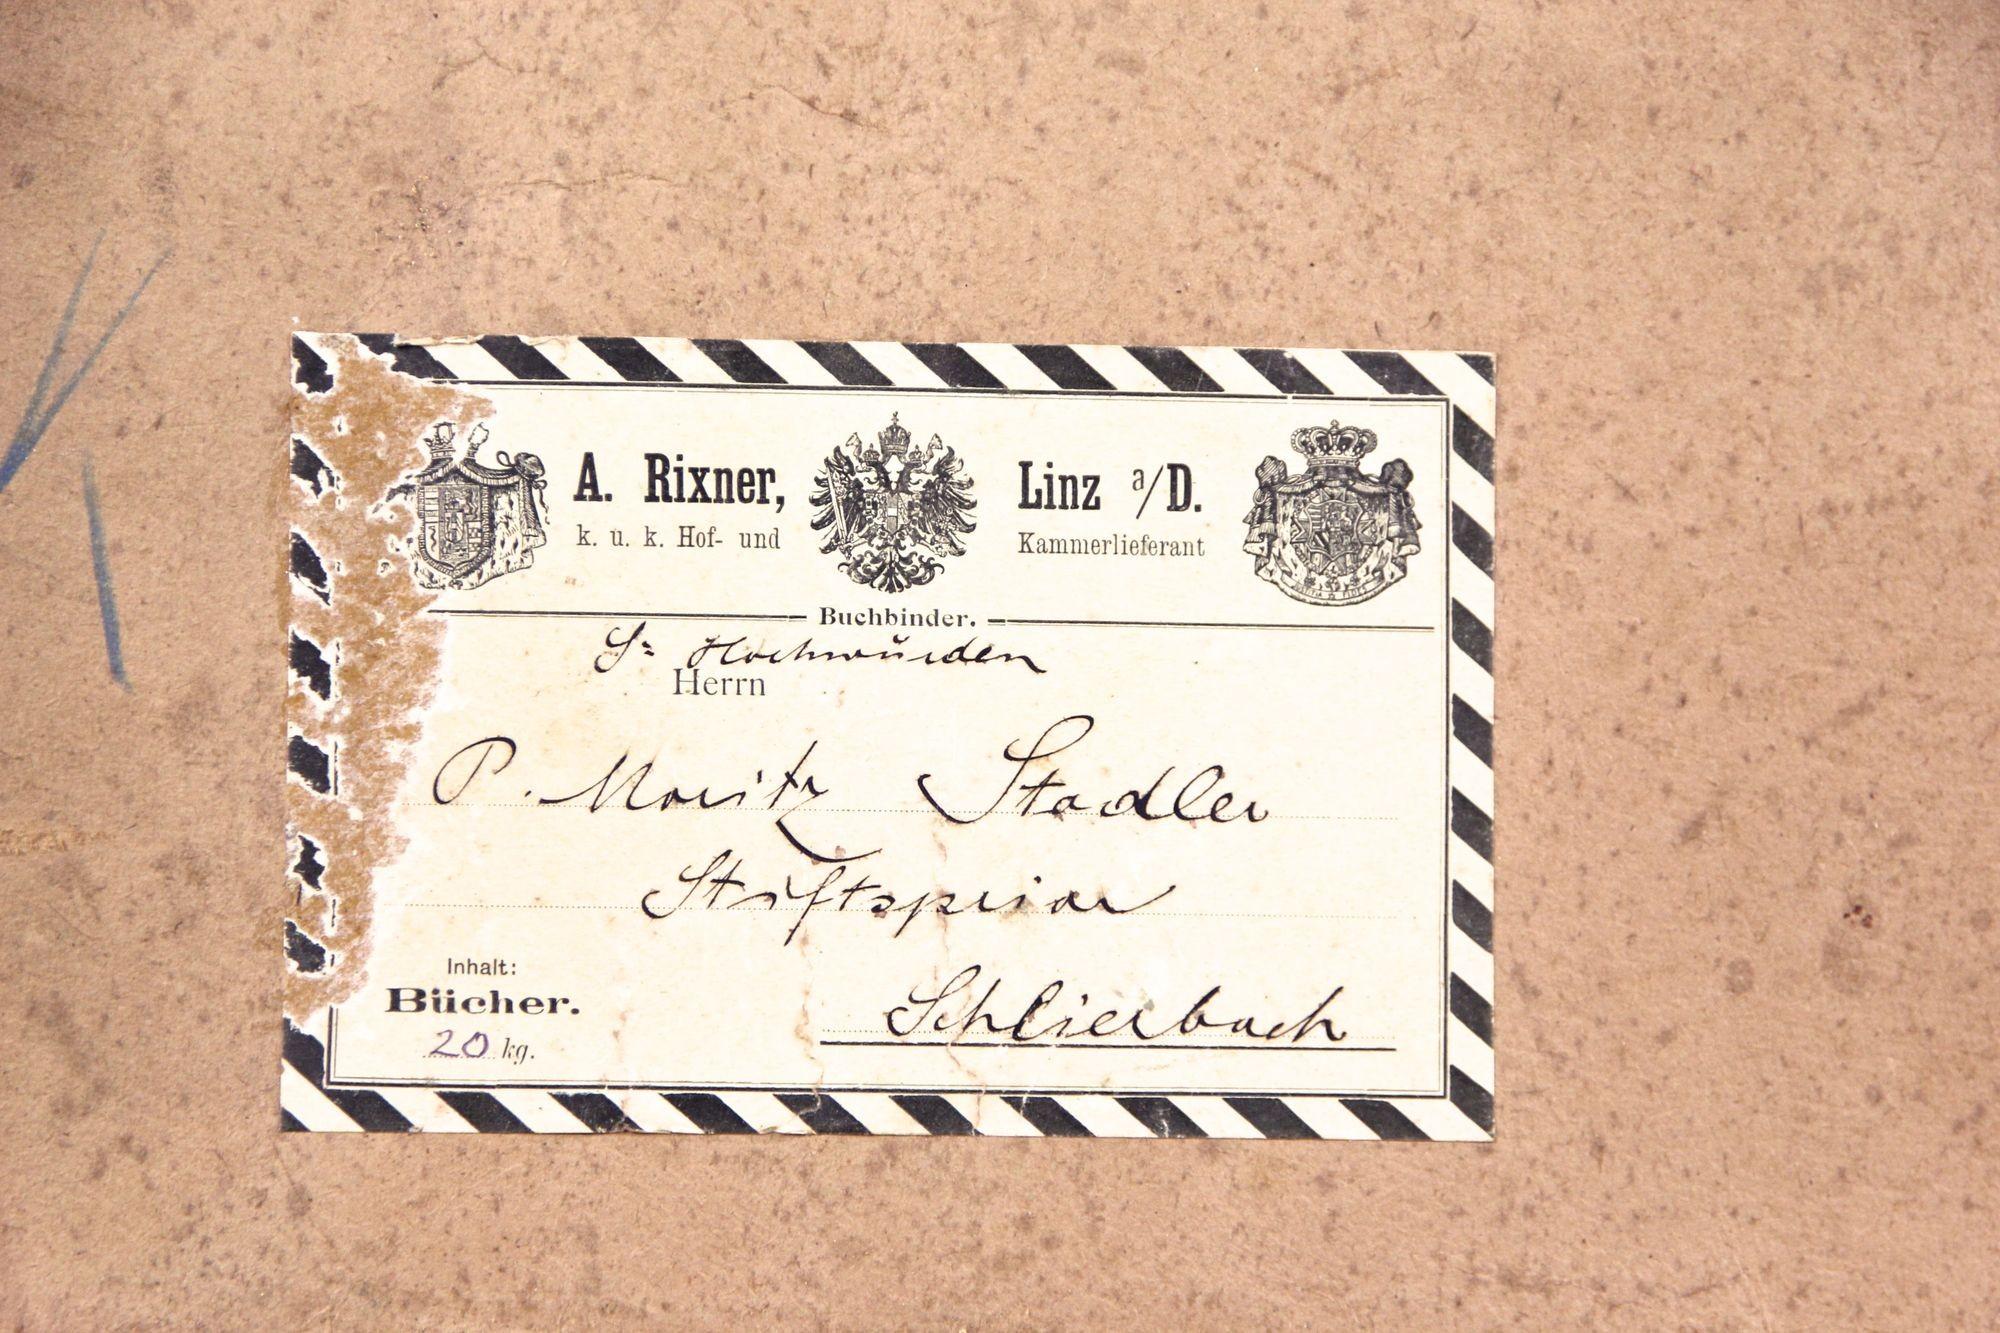 A. Rixner, Linz a/D.
k. u. k. Hof- und Kammerlieferant
Buchbinder.
Sr Hochwürden
Herrn
P. Moritz Stadler
Stiftsprior
Schlierbach
Inhalt:
Bücher.
20 kg.